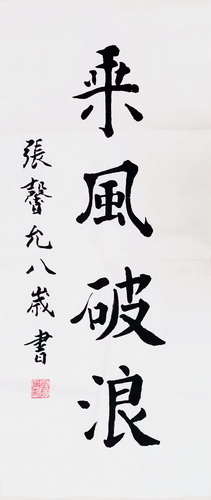 乘風破浪
張馨允八歲書